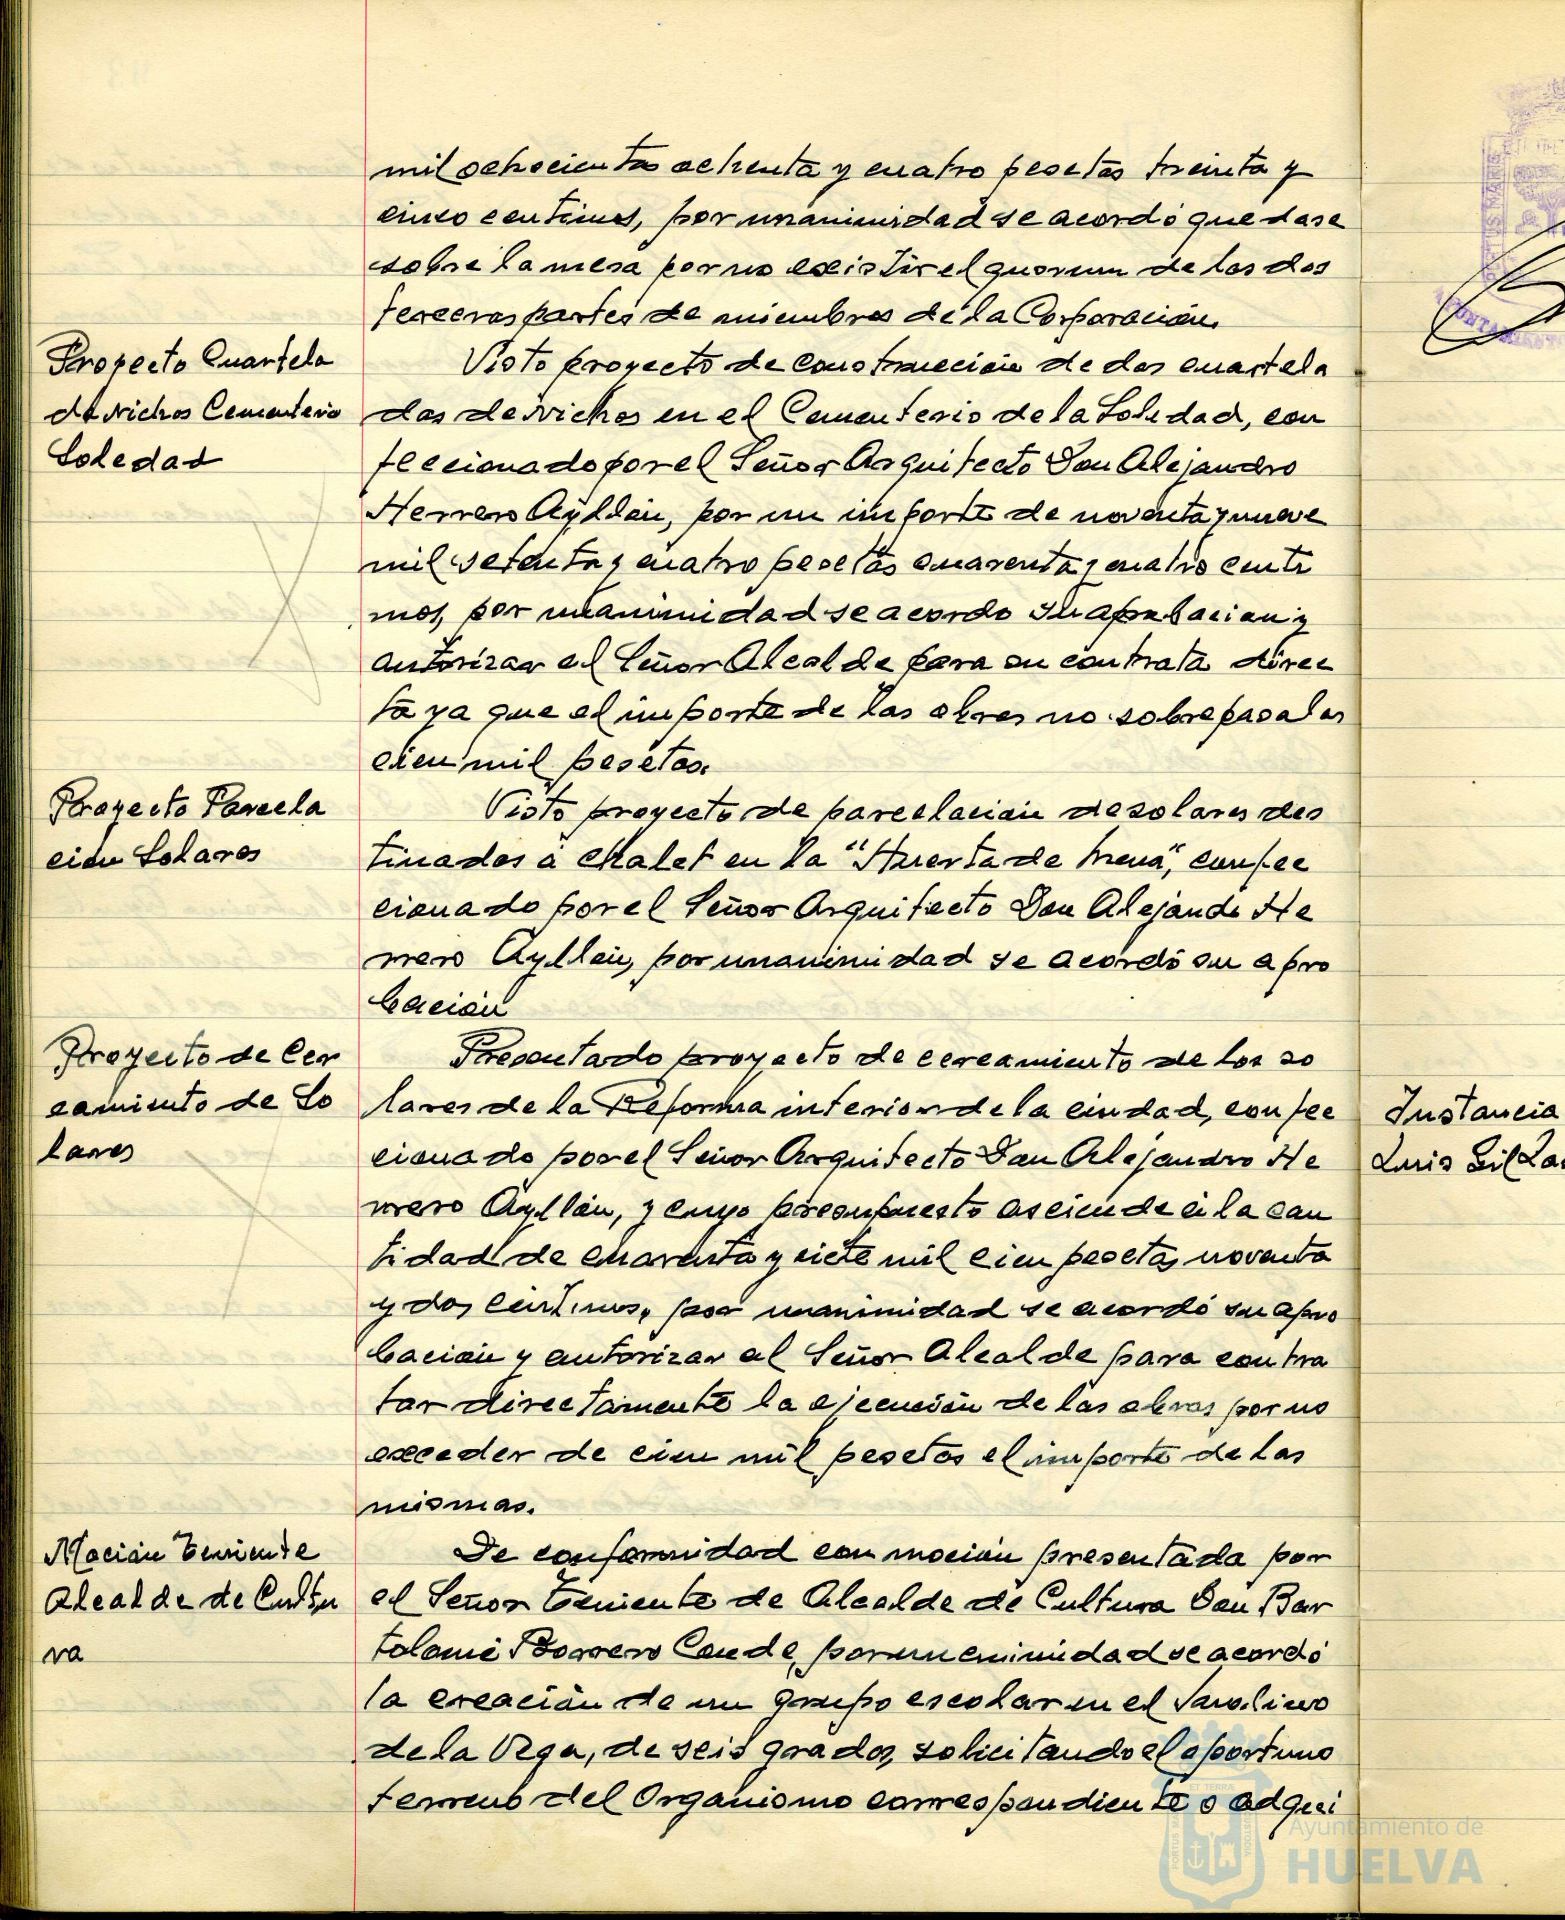 mil ochocientas ochenta y cuatro pesetas treinta y
cinco centimos, por unanimidad se acordó quedase
sobre la mesa por no existir el quorum de las dos
terceras partes de miembros de la Corporación.
Proyecto Cuartela
da Nichos Cementerio
Soledad
Visto proyecto de construcción de dos cuartela
das de Nichos en el Cementerio de la Soledad, con
feccionado por el Señor Arquitecto Don Alejandro
Herrero Ayllón, por un importe de noventa y nueve
mil setenta y cuatro pesetas cuarenta y cuatro centi
mos, por unanimidad se acordo su aprobacion y
autorizar al Señor Alcalde para su contrata direc
ta ya que el importe de las obras no sobrepasa las
cien mil pesetas.
Proyecto Parcela
ción Solares
Visto proyecto de parcelación de solares des
tinados a chalet en la "Huerta de Mena", confec
cionado por el Señor Arquitecto Don Alejando He
rrero Ayllón, por unanimidad se acordó su apro
bación
Proyecto de Cer
camiento de So
lares
Presentado proyecto de cercamiento de los so
lares de la Reforma interior de la ciudad, confec
cionado por el Señor Arquitecto Don Alejandro He
rrero Ayllón, y cuyo presupuesto asciende a la can
tidad de cuarenta y siete mil cien pesetas noventa
y dos centimos, por unanimidad se acordó su apro
bación y autorizar al Señor Alcalde para contra
tar directamente la ejecución de las obras por no
exceder de cien mil pesetas el importe de las
mismas.
Moción Teniente
Alcalde de Cultu
ra
De conformidad con moción presentada por
el Señor Teniente de Alcalde de Cultura Don Bar
tolomé Borrero Conde, por unanimidad se acordó
la creación de un grupo escolar en el
de la Vega, de seis grados, solicitando el oportuno
terreno del Organismo correspondiente o adqui
Instancia
Luis Gil
PORTUS MARIS
Ayuntamiento de
HUELVA